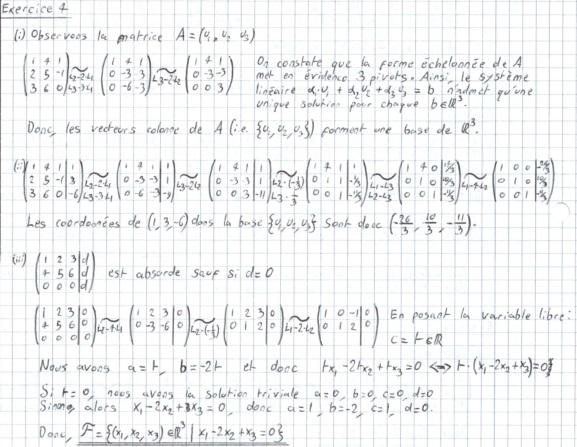 Exercice 4
(i) Observons la matrice A = (u₁, u₂ u₃)
( 1 4 1 ; 2 5 -1 ; 3 6 0 ) ~ L2-2L1 L3-3L1 ( 1 4 1 ; 0 -3 -3 ; 0 -6 -3 ) ~ L3-2L2 ( 1 4 1 ; 0 -3 -3 ; 0 0 3 )
On constate que la forme échelonnée de A
met en évidence 3 pivots. Ainsi, le système
linéaire α₁u₁ + α₂u₂ + α₃u₃ = b n'admet qu'une
unique solution pour chaque b∈ℝ³.
Donc, les vecteurs colonne de A (i.e. {u₁, u₂, u₃}) forment une base de ℝ³.
(ii) ( 1 4 1 | 1 ; 2 5 -1 | 3 ; 3 6 0 | -6 ) ~ L2-2L1 L3-3L1 ( 1 4 1 | 1 ; 0 -3 -3 | 1 ; 0 -6 -3 | -9 ) ~ L3-2L2 ( 1 4 1 | 1 ; 0 -3 -3 | 1 ; 0 0 3 | -11 ) ~ L2·(-1/3) L3·1/3 ( 1 4 1 | 1 ; 0 1 1 | -1/3 ; 0 0 1 | -11/3 ) ~ L1-L3 L2-L3 ( 1 4 0 | 14/3 ; 0 1 0 | 10/3 ; 0 0 1 | -11/3 ) ~ L1-4L2 ( 1 0 0 | -26/3 ; 0 1 0 | 10/3 ; 0 0 1 | -11/3 )
Les coordonnées de (1, 3, -6) dans la base {u₁, u₂, u₃} sont donc (-26/3, 10/3, -11/3).
(iii) ( 1 2 3 | d ; 4 5 6 | d ; 0 0 0 | d ) est absurde sauf si d=0
( 1 2 3 | 0 ; 4 5 6 | 0 ; 0 0 0 | 0 ) ~ L2-4L1 ( 1 2 3 | 0 ; 0 -3 -6 | 0 ) ~ L2·(-1/3) ( 1 2 3 | 0 ; 0 1 2 | 0 ) ~ L1-2L2 ( 1 0 -1 | 0 ; 0 1 2 | 0 )
En posant la variable libre:
c = t ∈ℝ
Nous avons a=t, b=-2t et donc tx₁ - 2tx₂ + tx₃ = 0 <=> t·(x₁-2x₂+x₃)=0}
Si t=0, nous avons la solution triviale a=0, b=0, c=0, d=0
Sinon, alors x₁-2x₂+x₃=0, donc a=1, b=-2, c=1, d=0.
Donc, F = {(x₁, x₂, x₃) ∈ℝ³ | x₁-2x₂+x₃=0}